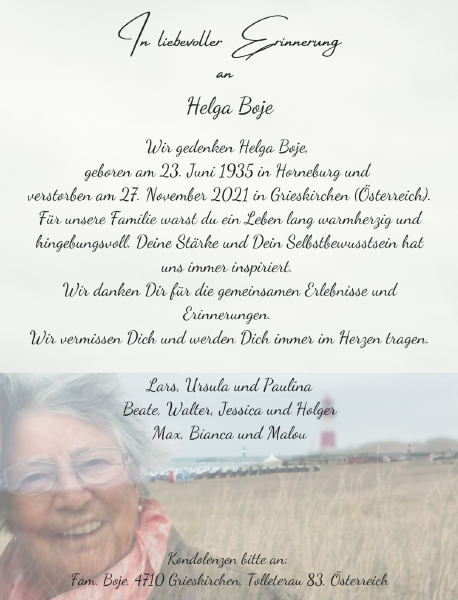 In liebevoller Erinnerung
an
Helga Boje
Wir gedenken Helga Boje,
geboren am 23. Juni 1935 in Horneburg und
verstorben am 27. November 2021 in Grieskirchen (Österreich).
Für unsere Familie warst du ein Leben lang warmherzig und
hingebungsvoll. Deine Stärke und Dein Selbstbewusstsein hat
uns immer inspiriert.
Wir danken Dir für die gemeinsamen Erlebnisse und
Erinnerungen.
Wir vermissen Dich und werden Dich immer im Herzen tragen.
Lars, Ursula und Paulina
Beate, Walter, Jessica und Holger
Max, Bianca und Malou
Kondolenzen bitte an:
Fam. Boje, 4710 Grieskirchen, Tolleterau 83, Österreich